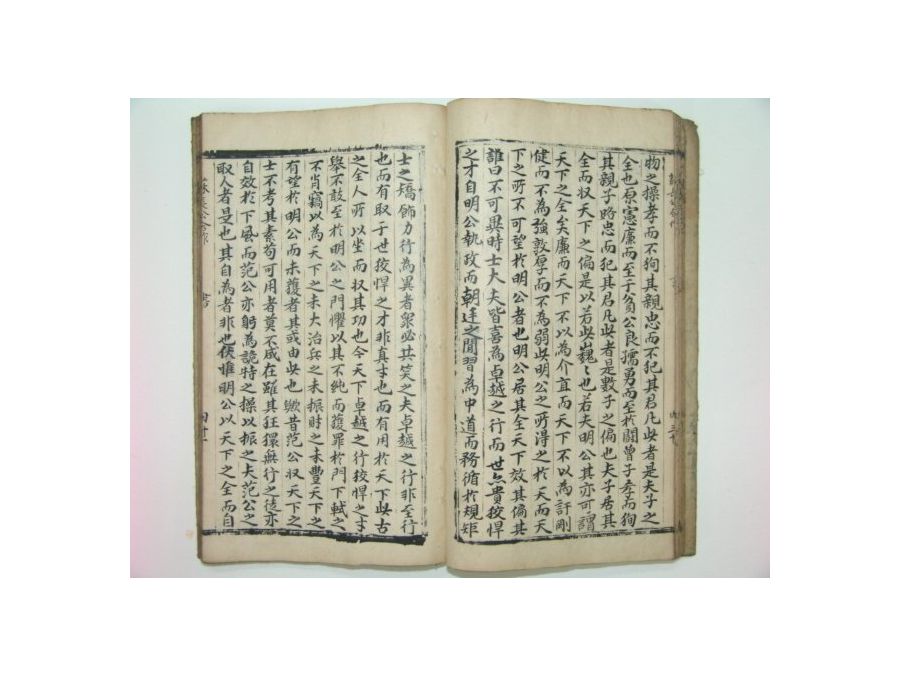 物之操孝而不狥其親忠而不犯其君凡此者是夫子之
全也原憲廉而至于貧公良孺勇而至於鬪曾子孝而狥
其親子路忠而犯其君凡此者是數子之偏也夫子居其
全而収天下之偏是以若此巍〻也若夫明公其亦可謂
天下之全矣廉而天下不以為介直而天下不以為訐剛
健而不為強敦厚而不為弱此明公之所得之於天而天
下之所不可望於明公者也明公居其全天下效其偏其
誰曰不可異時士大夫皆喜為卓越之行而世亦貴狡悍
之才自明公執政而朝廷之間習為中道而務循於規矩
士之矯飾力行為異者衆必共笑之夫卓越之行非至行
也而有取于世狡悍之才非真才也而有用於天下此古
之全人所以坐而収其功也今天下卓越之行狡悍之才
舉不敢至於明公之門懼以其不純而獲罪於門下軾之
不肖竊以為天下之未大治兵之未振財之未豊天下之
有望於明公而未獲者其或由此也歟昔范公収天下之
士不考其素苟可用者莫不咸在雖其狂獧無行之徒亦
自效於下風而范公亦躬為詭特之操以振之夫范公之
取人者是也其自為者非也伏惟明公以天下之全而自
書